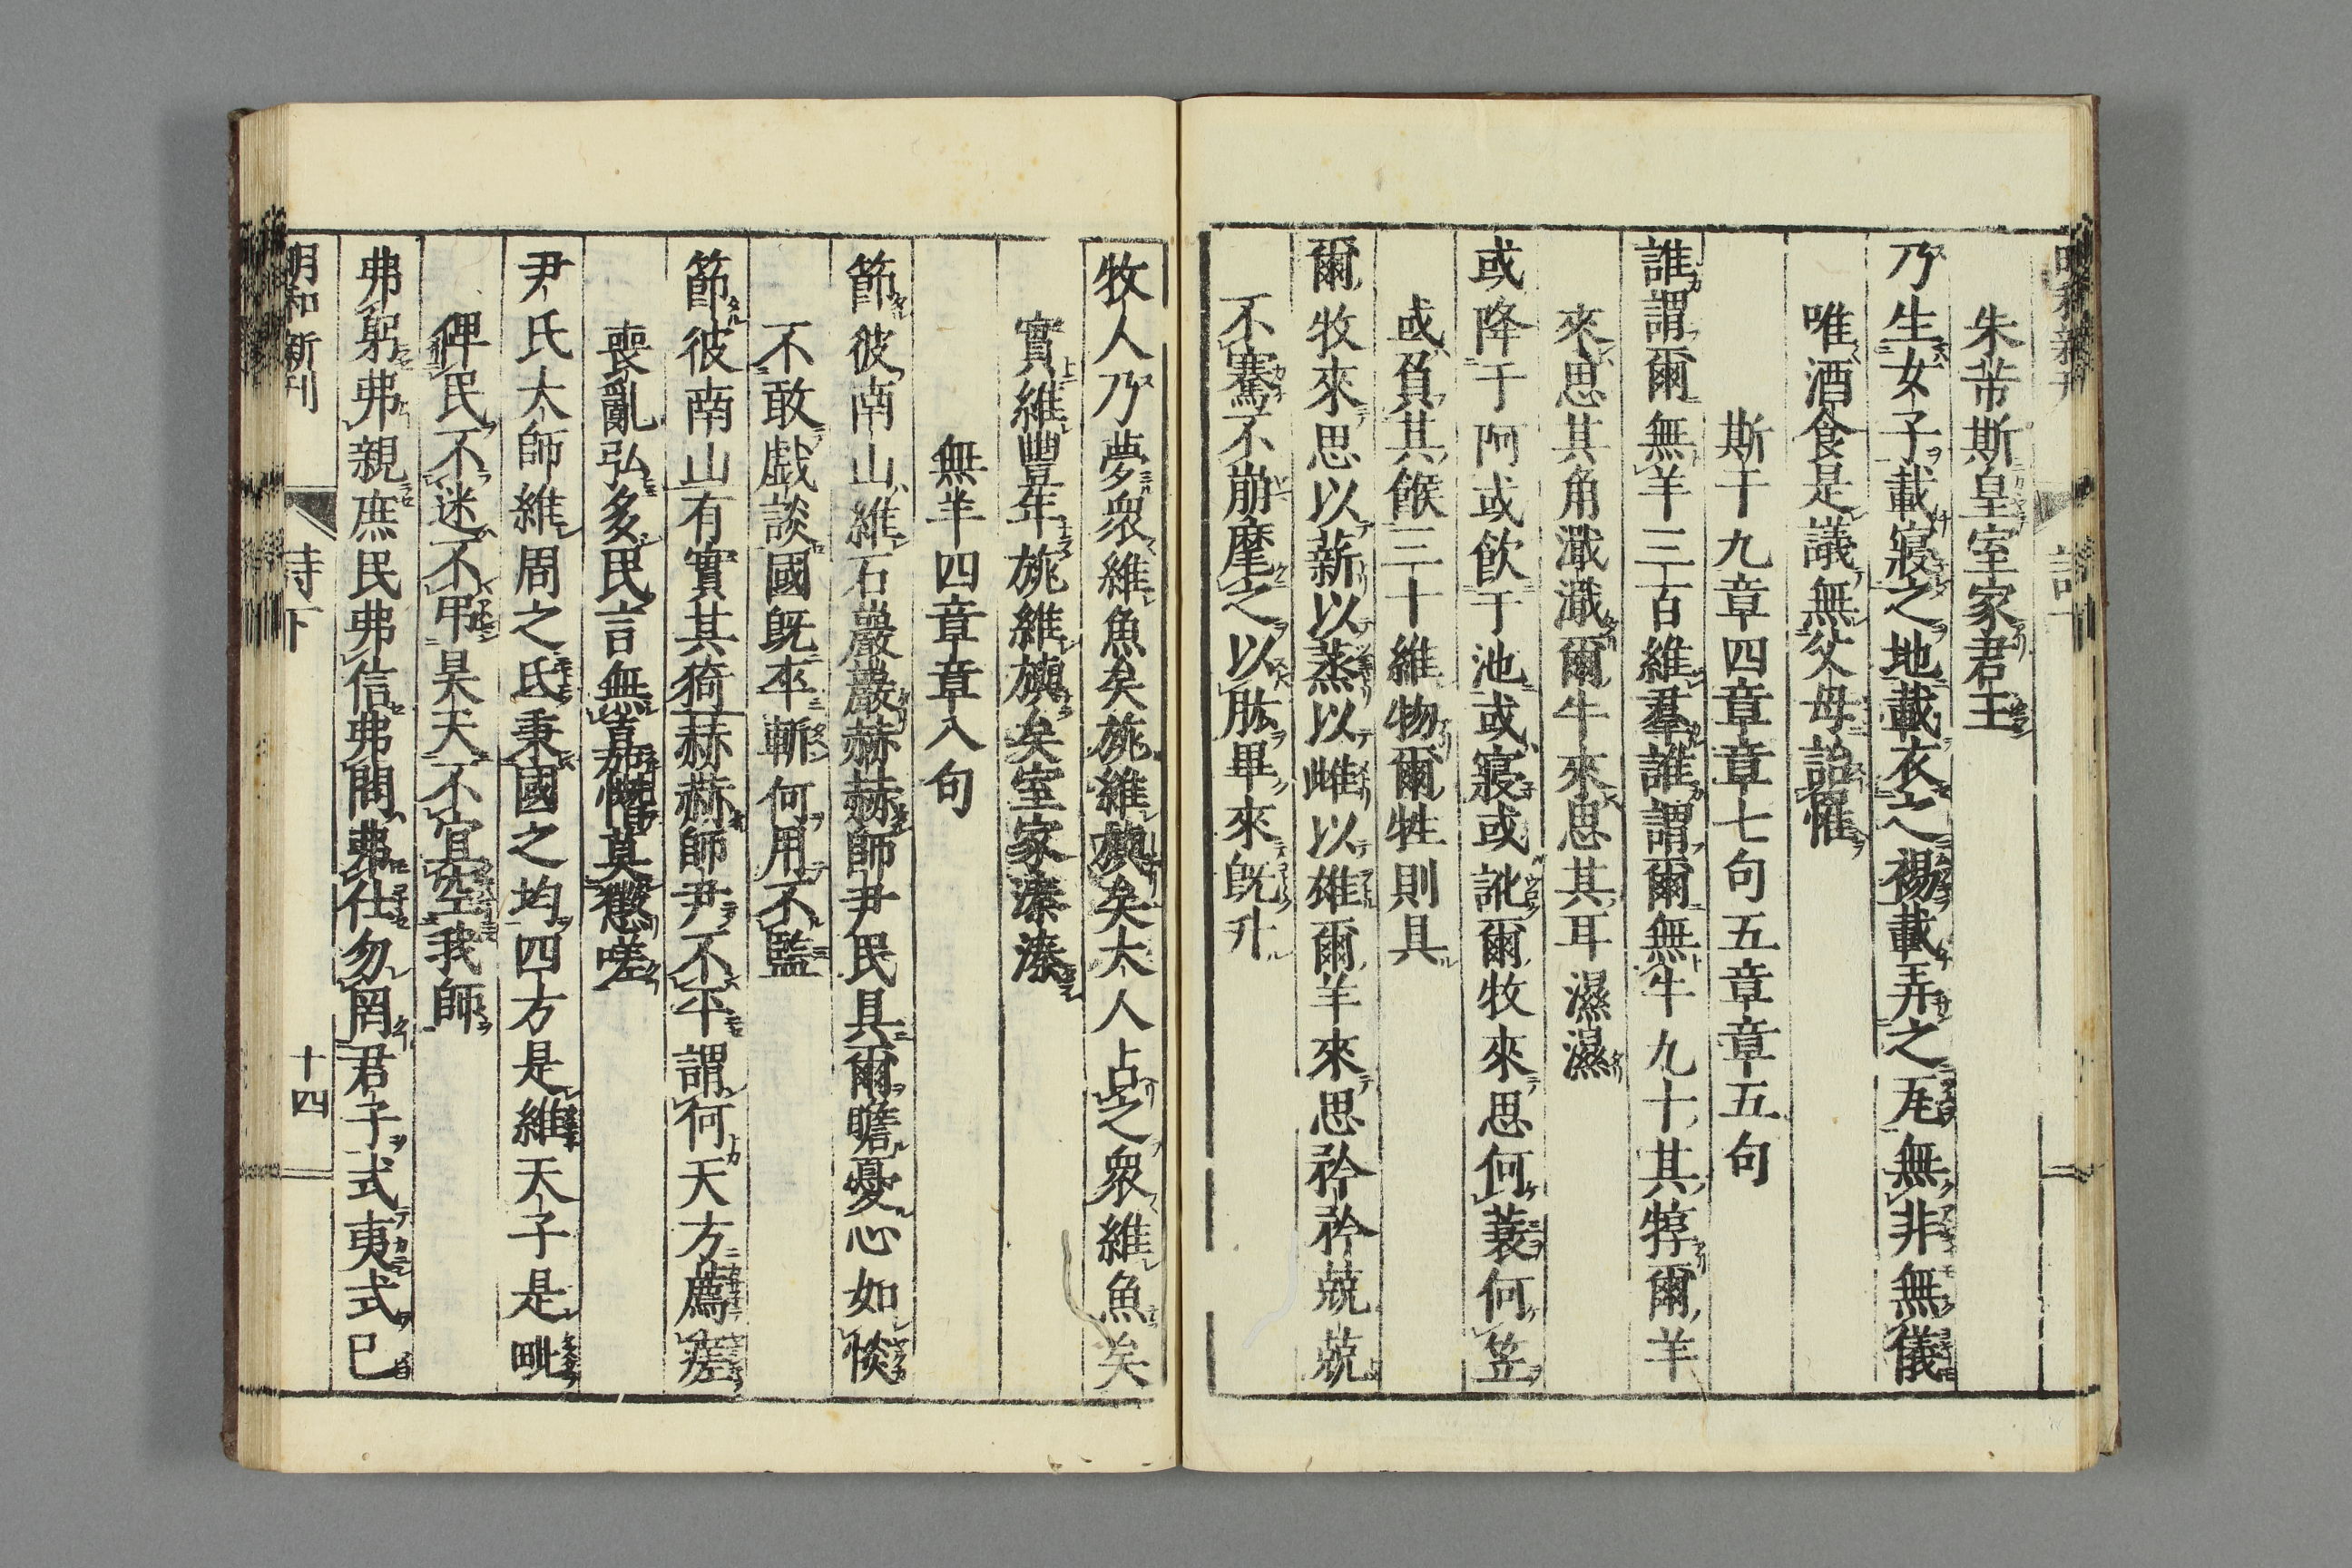 朱芾斯皇室家君王
乃生女子載寢之地載衣之裼載弄之瓦無非無儀
唯酒食是議無父母詒罹
斯干九章四章章七句五章章五句
誰謂爾無羊三百維羣誰謂爾無牛九十其犉爾羊
來思其角濈濈爾牛來思其耳濕濕
或降于阿或飲于池或寢或訛爾牧來思何蓑何笠
或負其餱三十維物爾牲則具
爾牧來思以薪以蒸以雌以雄爾羊來思矜矜兢兢
不騫不崩麾之以肱畢來既升
牧人乃夢衆維魚矣旐維旟矣大人占之衆維魚矣
實維豐年旐維旟矣室家溱溱
無羊四章章八句
節彼南山維石巖巖赫赫師尹民具爾瞻憂心如惔
不敢戲談國既卒斬何用不監
節彼南山有實其猗赫赫師尹不平謂何天方薦瘥
喪亂弘多民言無嘉憯莫懲嗟
尹氏大師維周之氐秉國之均四方是維天子是毗
俾民不迷不弔昊天不宜空我師
弗躬弗親庶民弗信弗問弗仕勿罔君子式夷式已
明和新刊
詩下
十四